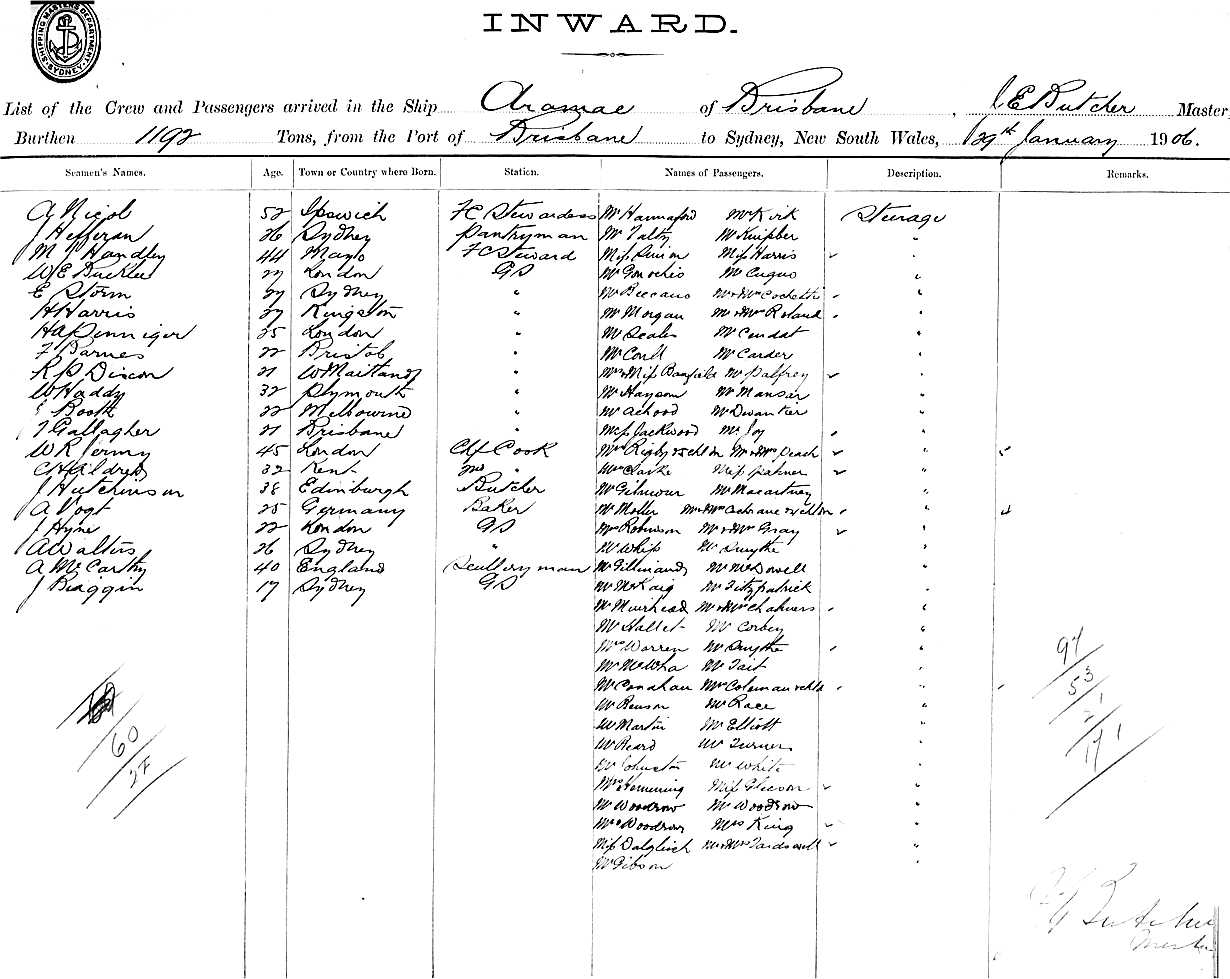 SHIPPING MASTERS DEPARTMENT SYDNEY
INWARD.
List of the Crew and Passengers arrived in the Ship Aramac of Brisbane, J E Butcher Master,
Burthen 1192 Tons, from the Port of Brisbane to Sydney, New South Wales, 29th January 1906.
Seamen's Names. Age. Town or Country where Born. Station. Names of Passengers. Description. Remarks.
A Nicol 52 Ipswich FC Stewardess Mr Hannaford Mr Kirk Steerage
J Hefferan 26 Sydney Pantryman Mr Talty Mr "
M J Handley 44 Mayo FC Steward Miss Miss Harris "
W E Bucklee 27 London GS Mr Mr "
E Storm 27 Sydney " Mr Mr & Mrs "
H Harris 27 Kingston " Mr Morgan Mr & Mrs Roland "
H A Pinniger 25 London " Mr Scales Mr "
F Barnes 22 Bristol " Mr Mr Carder "
R P Dixon 21 W Maitland " Mr & Miss Banfield Mr Palfrey "
W Haddy 32 Plymouth " Mr Hayson Mr Manser "
Booth 22 Melbourne " Mr Mr "
T Gallagher 21 Brisbane " Miss Jackwood Mr Joy "
W R Jermy 45 London Chf Cook Mrs Rigby & chldn Mr & Mrs Peach "
C H Aldred 32 Kent 2nd " Mrs Clarke Miss Palmer "
J Hutchinson 38 Edinburgh Butcher Mr Gilmour Mr Macartney "
A Vogt 25 Germany Baker Mr Moller Mr & Mrs Cochrane & chldn "
J Hyne 22 London GS Mrs Robinson Mr & Mrs Gray "
A Walters 26 Sydney " Mr Whip Mr Smythe "
A McCarthy 40 England Scullery man Mr Mr McDowell "
J Biaggin 17 Sydney GS Mr McKaig Mr Fitzpatrick "
Mr Muirhead Mr & Mrs Chalmers "
Mr Hallet Mr Corbey "
Mrs Warren Mr Smythe "
Mr McWha Mr Tait "
Mr Conahan Mrs Coleman & chld "
Mr Renson Mr Race "
Mr Martin Mr Elliott "
Mr Beard Mr Turner "
Mr Johnston Mr White "
Mrs Hemming Miss Gleeson "
Mr Woodrow Mr Woodrow "
Mrs Woodrow Mrs King "
Miss Dalgliesh Mr & Mrs "
Mr Gibson "
60
27
97
53
21
171
J E Butcher
Master